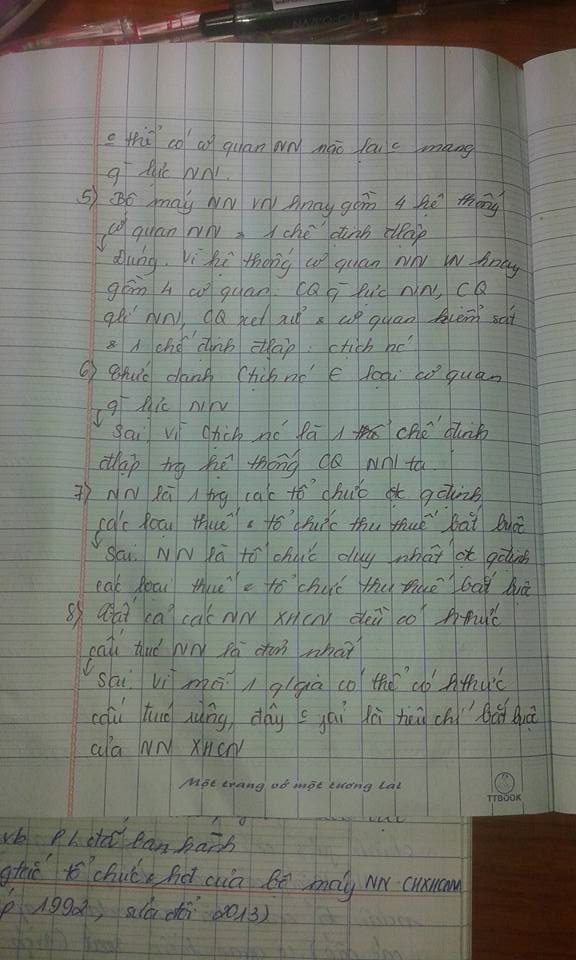 c thể có cơ quan NN nào lại c mang
q̄ lực NN.
5) Bộ máy NN VN hnay gồm 4 hệ thống
cơ quan NN & 1 chế định đlập
Đúng. Vì hệ thống cơ quan NN VN hnay
gồm 4 cơ quan: CQ q̄ lực NN, CQ
qlí NN, CQ xét xử & cơ quan kiểm sát
& 1 chế định đlập: ctịch nc
6) Chức danh Ctịch nc ∈ loại cơ quan
q̄ lực NN
Sai. vì Ctịch nc là 1 chế định
đlập trg hệ thống CQ NN ta.
7) NN là 1 trg các tổ chức đc qđịnh
các loại thuế & tổ chức thu thuế bắt buộc
Sai. NN là tổ chức duy nhất đc qđịnh
các loại thuế & tổ chức thu thuế bắt buộc
8) Tất cả các NN XHCN đều có hthức
cấu trúc NN là đơn nhất
Sai. Vì mỗi 1 q/gia có thể có hthức
cấu trúc riêng, đây c fải là tiêu chí bắt buộc
của NN XHCN
Một trang vở một tương lai
TTBOOK
vb PL đã ban hành
tổ chức & hđ của bộ máy NN CHXHCNVN
1992, sửa đổi 2013)